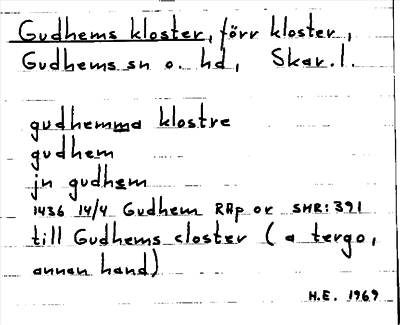 Gudhems kloster, förr kloster,
Gudhems sn o. hd, Skar. l.
gudhemma klostre
gudhem
jn gudhem
1436 14/4 Gudhem RAp or SMR: 391
till Gudhems closter (a tergo,
annan hand)
H.E. 1969